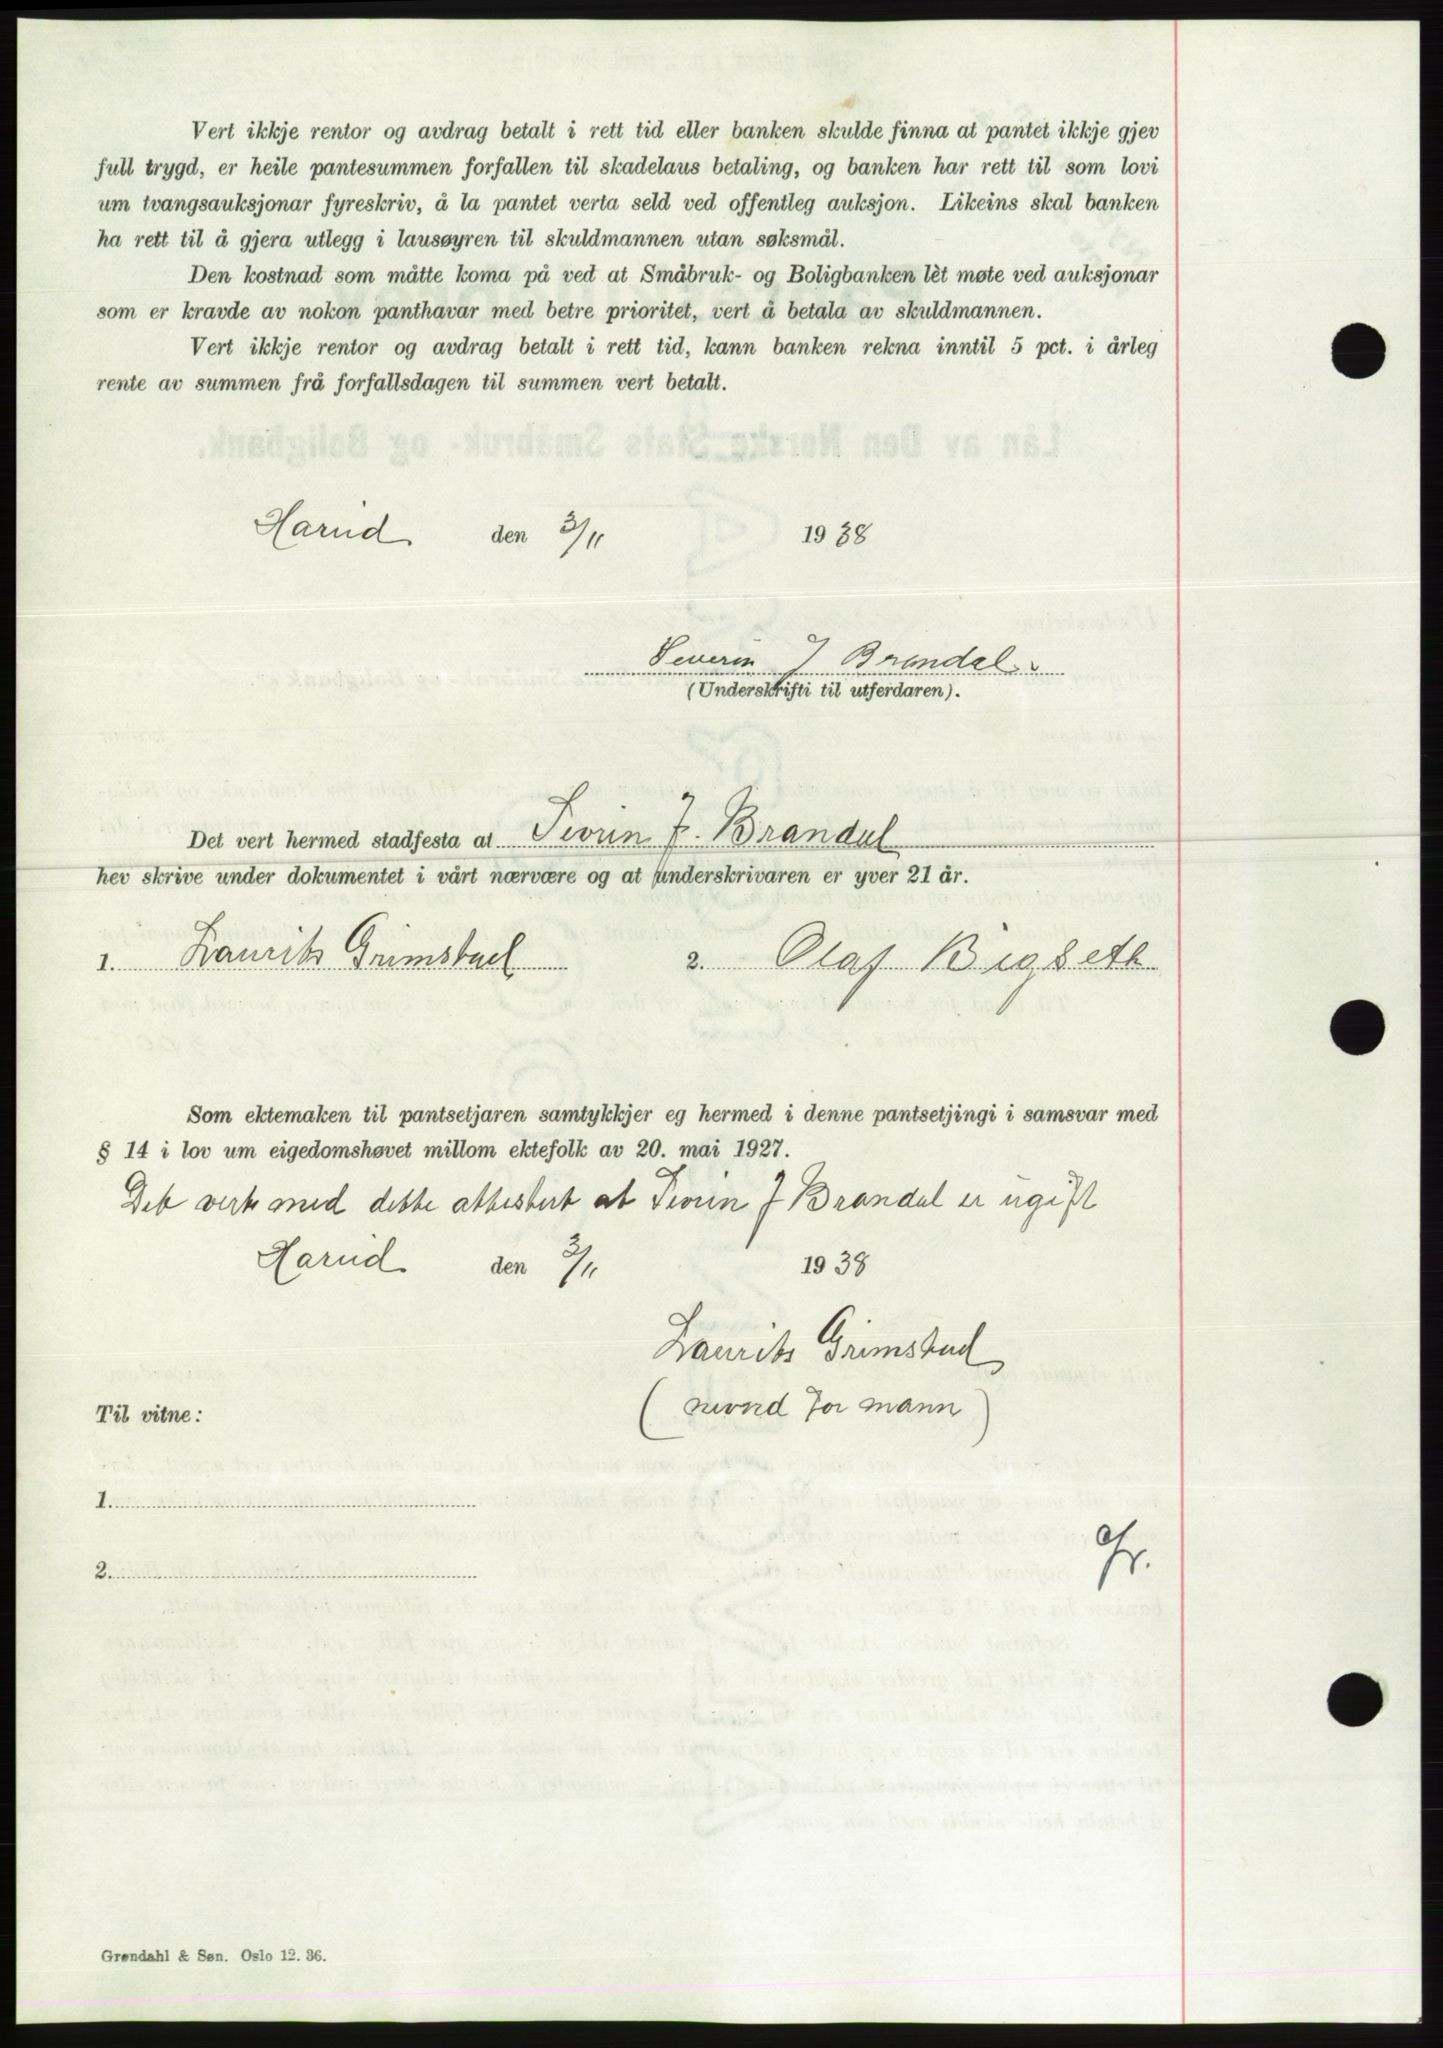 Vert ikkje rentor og avdrag betalt i rett tid eller banken skulde finna at pantet ikkje gjev
full trygd, er heile pantesummen forfallen til skadelaus betaling, og banken har rett til som lovi
um tvangsauksjonar fyreskriv, å la pantet verta seld ved offentleg auksjon. Likeins skal banken
ha rett til å gjera utlegg i lausøyren til skuldmannen utan søksmål.
Den kostnad som måtte koma på ved at Småbruk- og Boligbanken lèt møte ved auksjonar
som er kravde av nokon panthavar med betre prioritet, vert å betala av skuldmannen.
Vert ikkje rentor og avdrag betalt i rett tid, kann banken rekna inntil 5 pct. i årleg
rente av summen frå forfallsdagen til summen vert betalt.
Hareid den 3/11 1938
Severin J Brandal
(Underskrifti til utferdaren).
Det vert hermed stadfesta at Sevrin J. Brandal
hev skrive under dokumentet i vårt nærvære og at underskrivaren er yver 21 år.
1. Laurits Grimstad 2. Olaf Bigseth
Som ektemaken til pantsetjaren samtykkjer eg hermed i denne pantsetjingi i samsvar med
§ 14 i lov um eigedomshøvet millom ektefolk av 20. mai 1927.
Det vert med dette attestert at Sevrin J Brandal er ugift
Hareid den 3/11 1938
Laurits Grimstad
( for mann )
Til vitne:
1.
2.
Grøndahl & Søn. Oslo 12. 36.